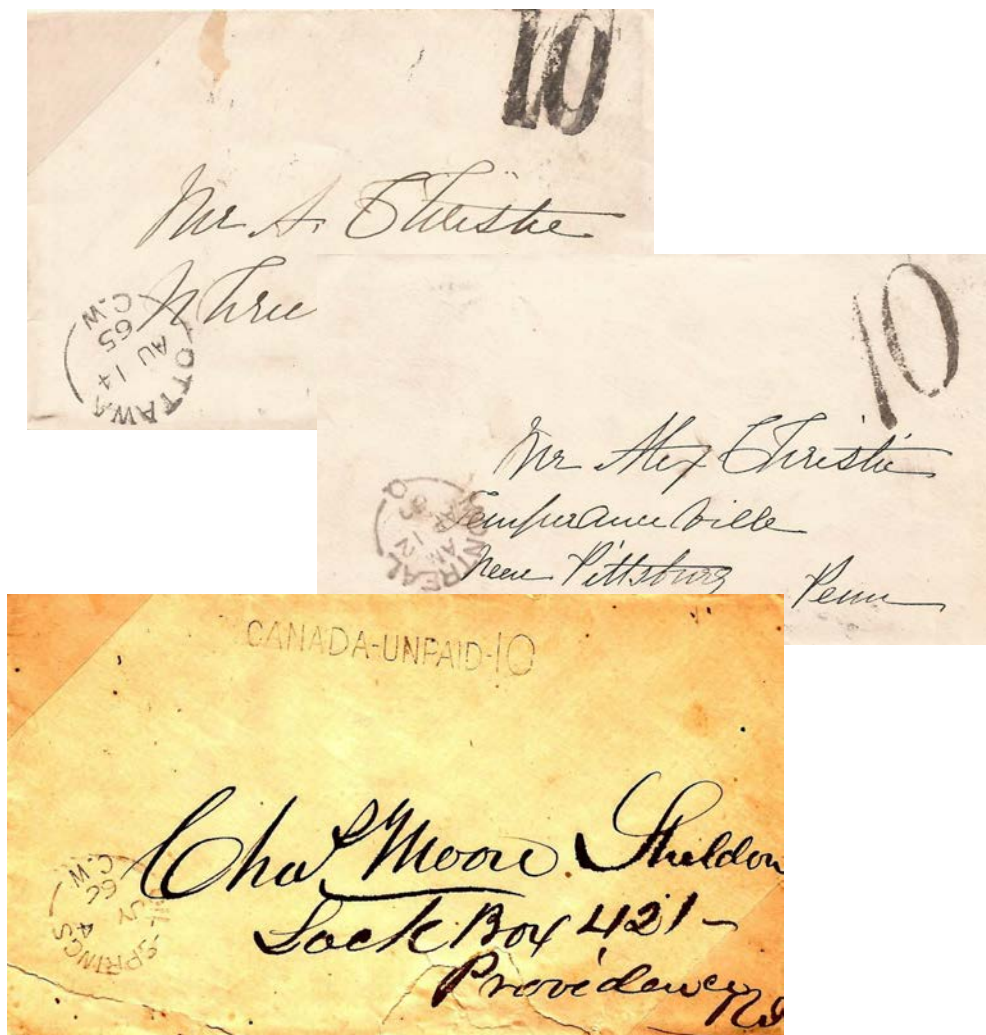 10
Mr A. Christie
N Three
OTTAWA
AU 14
65
C.W
10
Mr Alex Christie
Temperanceville
Near Pittsburg Penn
MONTREAL
CANADA-UNPAID-10
Chas Moore Sheldon
Lock Box 421-
Providence
SPRINGS
JY 4
62
C.W